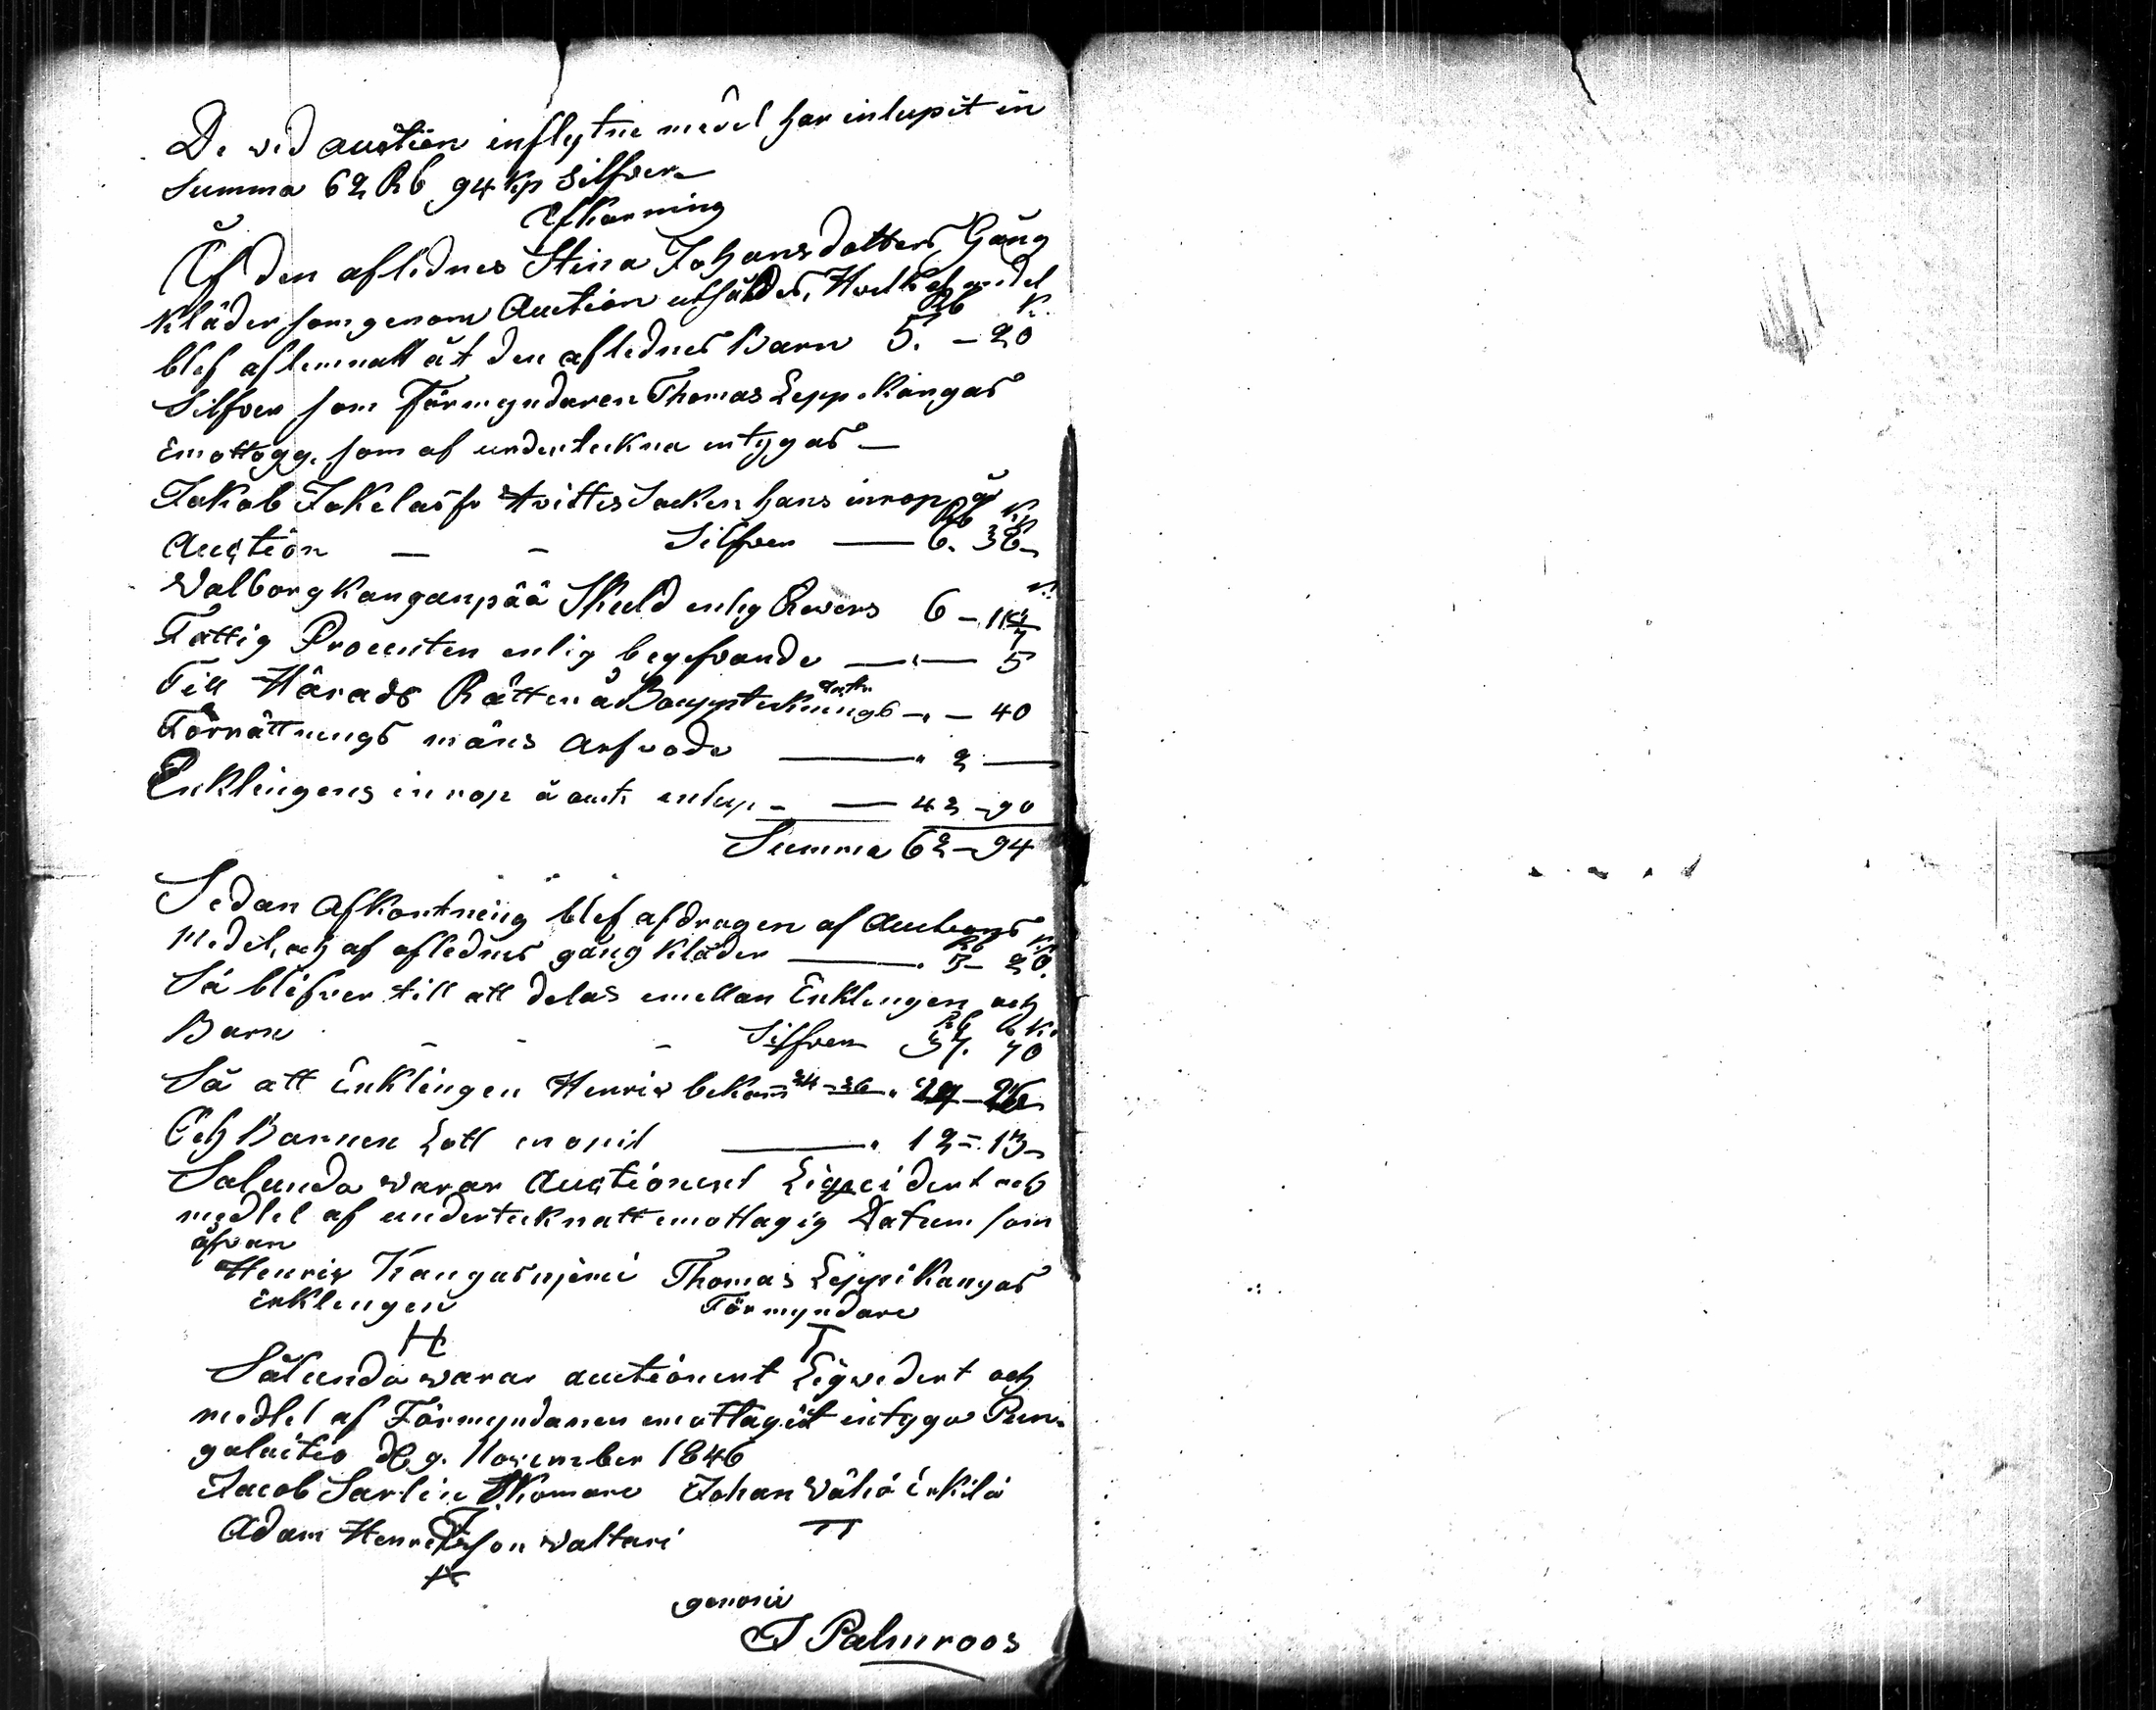 De wid auction inflytne medel har inlupit in
Summa 62 Rb 94 Kp Silfver
Afkortning
Af den aflednes Stina Johansdotters Gång
Kläder som genom Auction utsåldes, Hvilket medel
Rb K.
blef aflemnatt åt den aflednes Barn 5. – 20
Silfver som Förmyndaren Thomas Leppikangas
emottogg, som af undertekna intygas –
Jakob Jokela ifr Hvittis Socken hans inrop på
Rb Kp
Auction — – Silfver — 6. 36
Walborg Kanganpää Skuld enlig Revers 6 –
Fattig Procenten enlig begefvande — " — 5
Till Härads Rätten å Bouppteknings – " – 40
Förrättnings mäns Arfvode — " 2 —
Enklingens inrop å auct: enlup – — 42 – 90
Summa 62 – 94
Sedan Afkortning blef afdragen af Auctions
Rb Kp
Medel, och af aflednes gång Kläder — . 5 – 20.
Så blifver till att delas emellan Enklingen och
Rb Kp
Barn – – – Silfver 37. 70
Så att Enklingen Henrik bekom
Och Barnen Lott
— " 12 = 13
Salunda warar Auctionent Liqvidert och
medlel af underteknatt emottagig Datum som
ofvan
Henrik Kangasnjemi Thomas Leppikangas
Enklengen Förmyndare
H T
Sålunda warar auctionent Liqvidert och
medlel af Förmyndaren emottagit intygar Pun-
galaitio d. 9. November 1846
Jacob Sarlin Johan Wähä Erkilä
Adam Henriksson Waltari
genom
J Palmroos